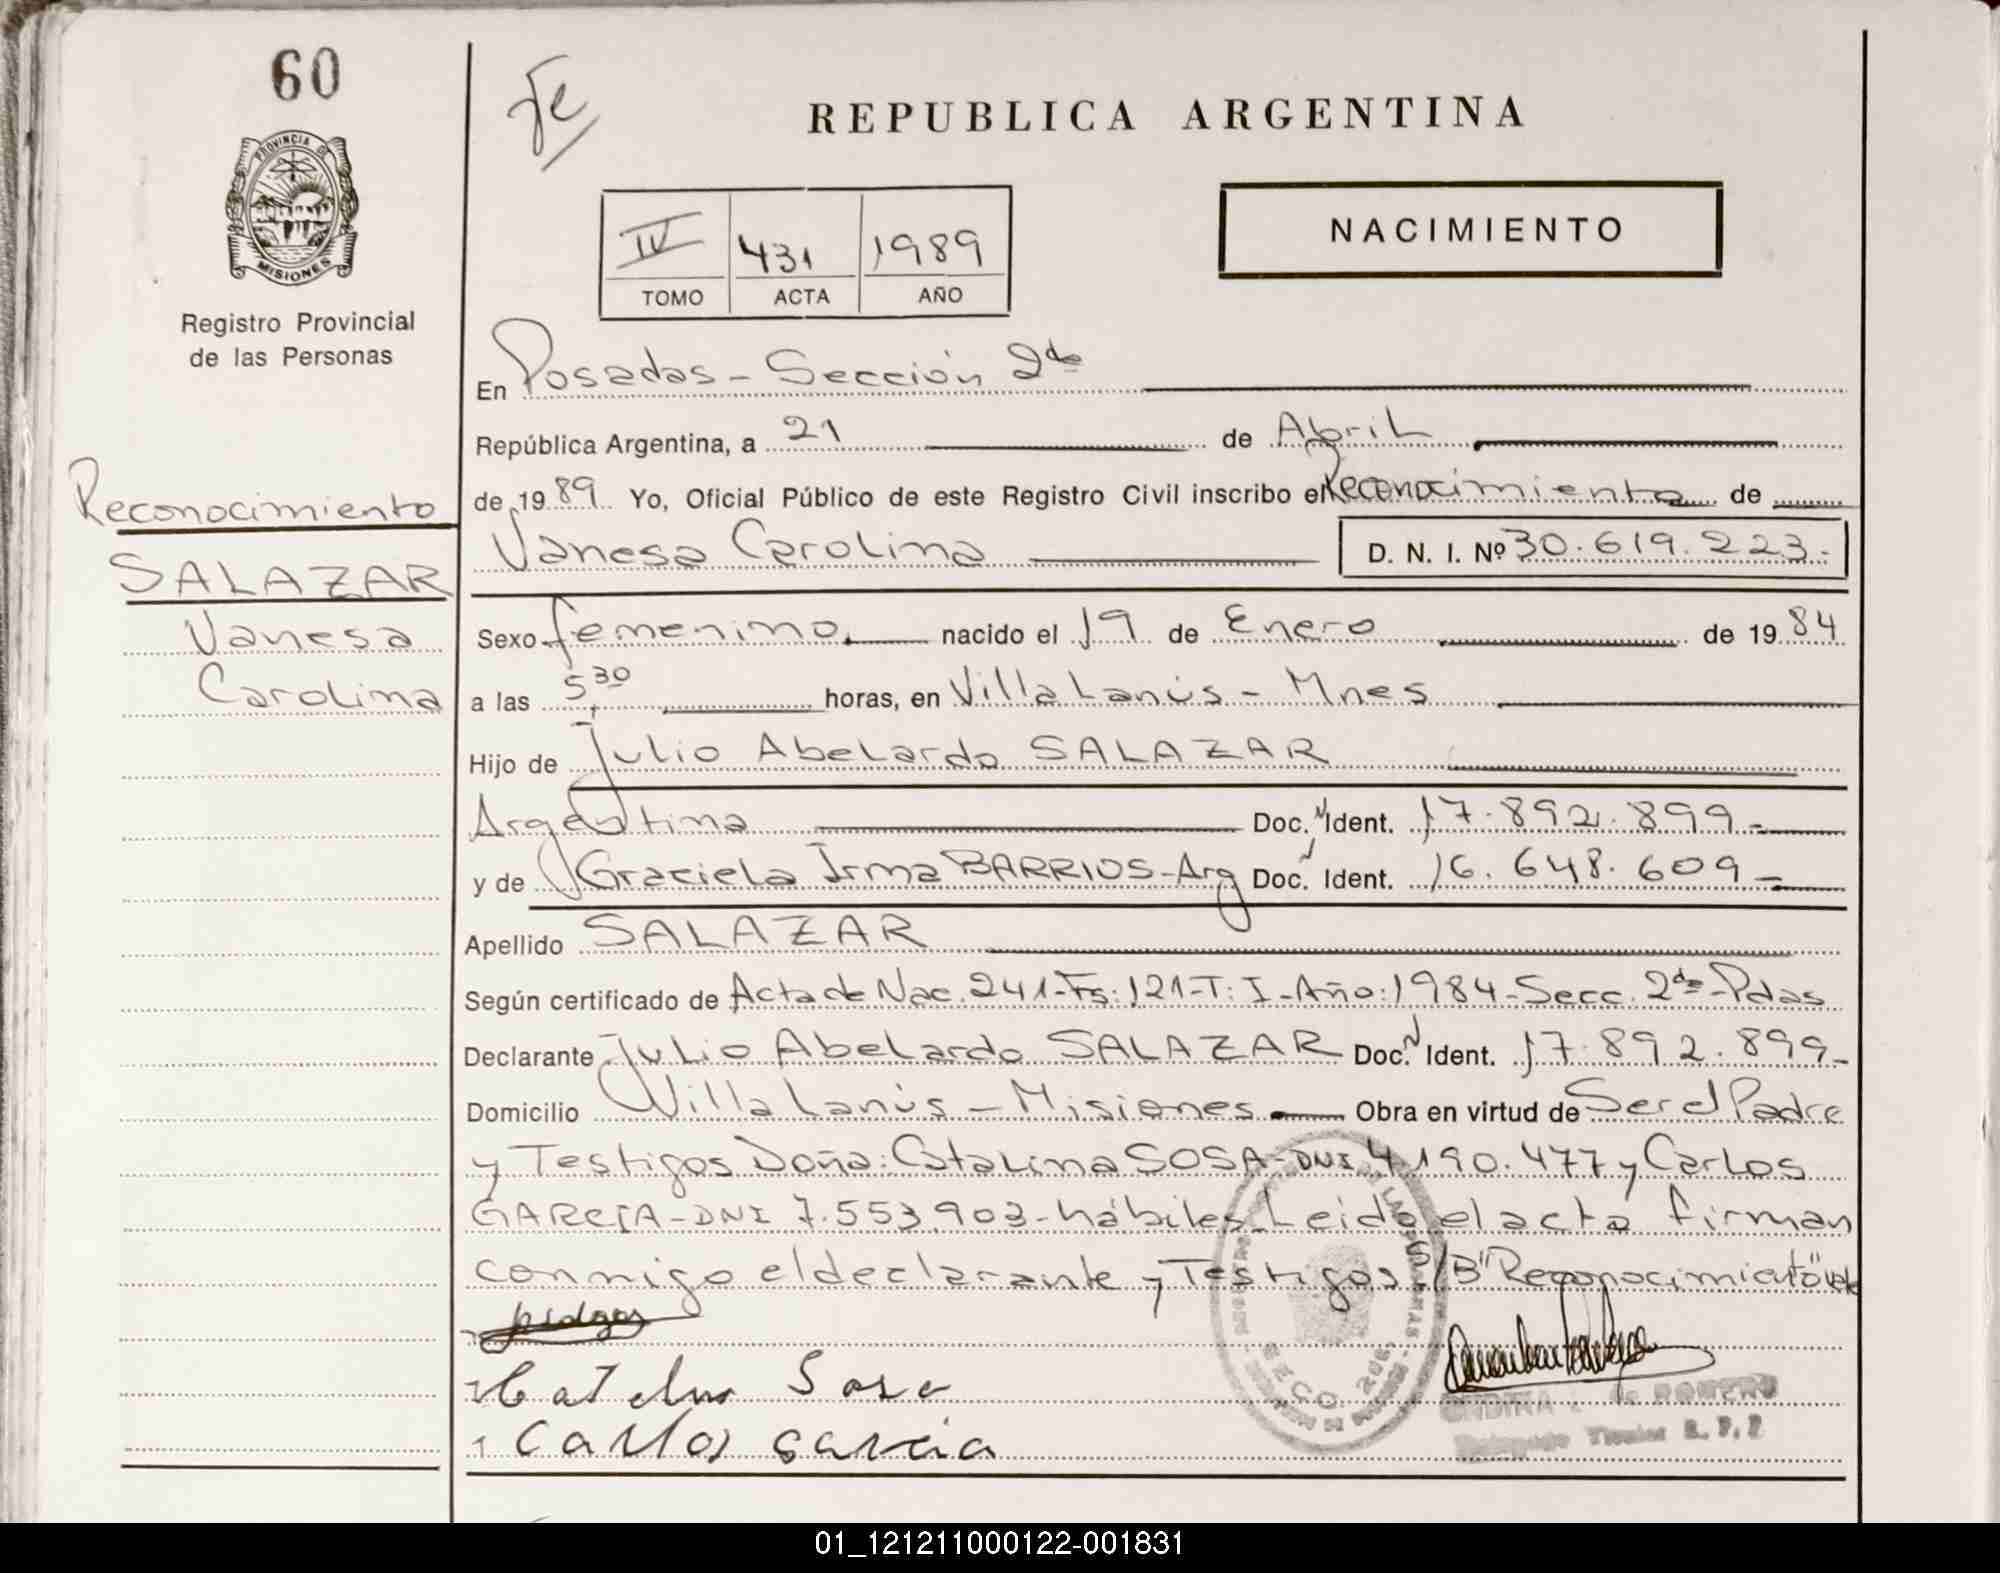 60
PROVINCIA DE
MISIONES
Registro Provincial
de las Personas
Reconocimiento
SALAZAR
Vanesa
Carolina
REPUBLICA ARGENTINA
IV 431 1989
TOMO ACTA AÑO
NACIMIENTO
En Posadas - Sección 2da
República Argentina, a 21 de Abril
de 1989 Yo, Oficial Público de este Registro Civil inscribo el Reconocimiento de
Vanesa Carolina D. N. I. Nº 30.619.223.-
Sexo femenino. nacido el 19 de Enero de 1984
a las 5,30 horas, en Villa Lanús - Mnes
Hijo de Julio Abelardo SALAZAR
Argentina Doc. N Ident. 17.892.899.-
y de Graciela Irma BARRIOS-Arg Doc. N Ident. 16.648.609-
Apellido SALAZAR
Según certificado de Acta de Nac. 241-Fs:121-T:I-Año:1984-Secc. 2da-Pdas
Declarante Julio Abelardo SALAZAR Doc. N Ident. 17.892.899-
Domicilio Villa Lanús - Misiones. Obra en virtud de Ser el Padre
y Testigos Doña: Catalina SOSA-DNI 4.190.477 y Carlos
GARCIA-DNI 7.553.903-hábiles. Leida el acta firman
conmigo el declarante y Testigos S/B "Reconocimiento" Vale
Catalina Sosa
Carlos Garcia
ROMERO
01_121211000122-001831